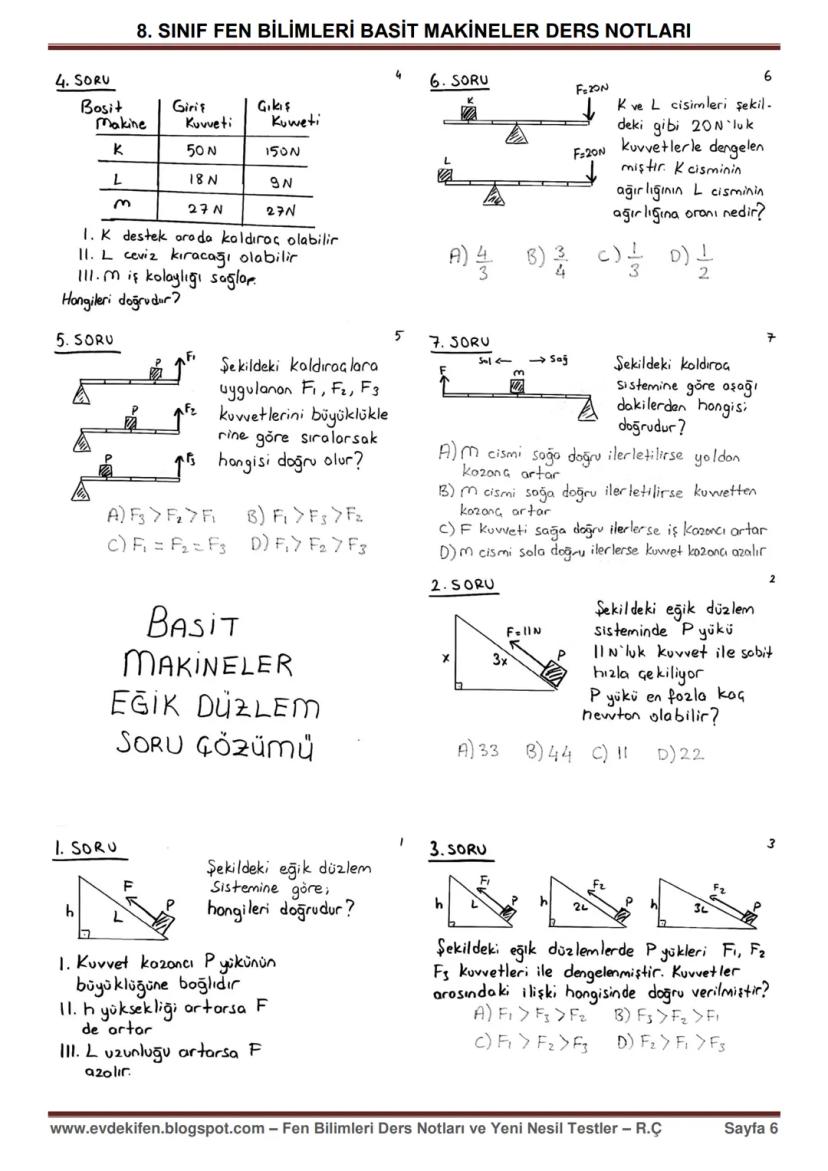 8. SINIF FEN BİLİMLERİ BASİT MAKİNELER DERS NOTLARI
4. SORU
4
Basit Makine | Giriş Kuvveti | Çıkış Kuvveti
K | 50 N | 150N
L | 18 N | 9N
M | 27 N | 27N
I. K destek arada kaldıraç olabilir
II. L ceviz kıracağı olabilir
III. M iş kolaylığı sağlar.
Hangileri doğrudur?
5. SORU
5
P F1
P F2
P F3
Şekildeki kaldıraçlara
uygulanan F1, F2, F3
kuvvetlerini büyüklükle
rine göre sıralarsak
hangisi doğru olur?
A) F3 > F2 > F1 B) F1 > F3 > F2
C) F1 = F2 = F3 D) F1 > F2 > F3
BASİT
MAKİNELER
EĞİK DÜZLEM
SORU ÇÖZÜMÜ
1. SORU
1
h L F P
Şekildeki eğik düzlem
sistemine göre;
hangileri doğrudur?
I. Kuvvet kazancı P yükünün
büyüklüğüne bağlıdır
II. h yüksekliği artarsa F
de artar
III. L uzunluğu artarsa F
azalır.
6. SORU
6
K F=20N
L F=20N
K ve L cisimleri şekil-
deki gibi 20N'luk
kuvvetlerle dengelen
miştir. K cisminin
ağırlığının L cisminin
ağırlığına oranı nedir?
A) 4/3 B) 3/4 C) 1/3 D) 1/2
7. SORU
7
Sol ← → Sağ
F m
Şekildeki kaldıraç
sistemine göre aşağı
dakilerden hangisi
doğrudur?
A) M cismi sağa doğru ilerletilirse yoldan
kazanç artar
B) M cismi sağa doğru ilerletilirse kuvvetten
kazanç artar
C) F kuvveti sağa doğru ilerlerse iş kazancı artar
D) M cismi sola doğru ilerlerse kuvvet kazancı azalır
2. SORU
2
x 3x F=11N P
Şekildeki eğik düzlem
sisteminde P yükü
11 N'luk kuvvet ile sabit
hızla çekiliyor
P yükü en fazla kaç
newton olabilir?
A) 33 B) 44 C) 11 D) 22
3. SORU
3
h L F1 P
h 2L F2 P
h 3L F2 P
Şekildeki eğik düzlemlerde P yükleri F1, F2
F3 kuvvetleri ile dengelenmiştir. Kuvvetler
arasındaki ilişki hangisinde doğru verilmiştir?
A) F1 > F3 > F2 B) F3 > F2 > F1
C) F1 > F2 > F3 D) F2 > F1 > F3
www.evdekifen.blogspot.com – Fen Bilimleri Ders Notları ve Yeni Nesil Testler – R.Ç Sayfa 6